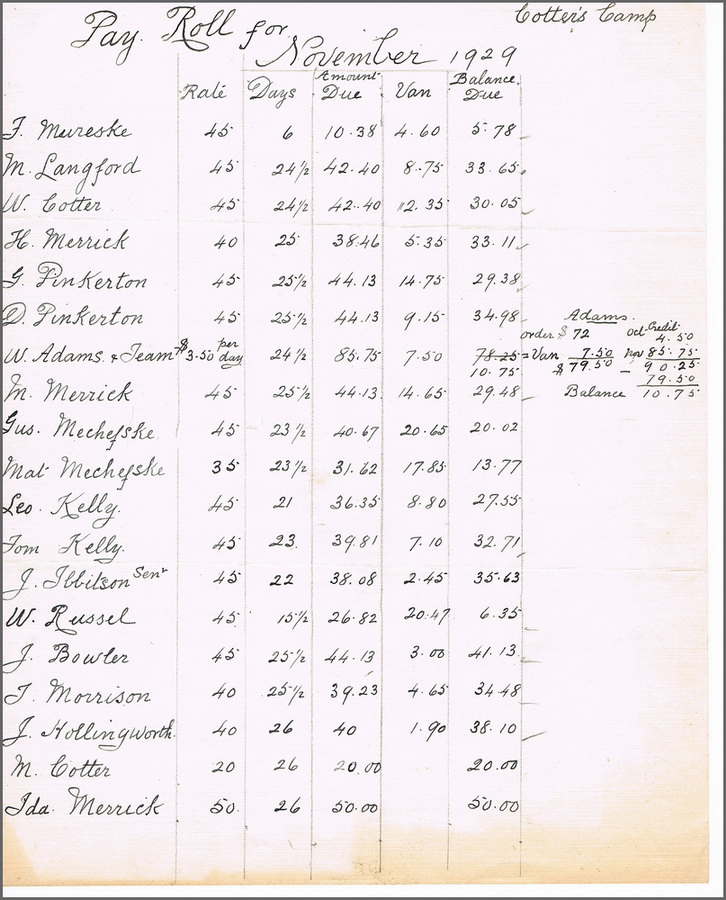 Cotter's Camp
Pay Roll for
November 1929
Rate Days Amount Due Van Balance Due
F. Mureske 45 6 10.38 4.60 5.78
M. Langford 45 24½ 42.40 8.75 33.65
W. Cotter 45 24½ 42.40 12.35 30.05
H. Merrick 40 25 38.46 5.35 33.11
G. Pinkerton 45 25½ 44.13 14.75 29.38
D. Pinkerton 45 25½ 44.13 9.15 34.98
W. Adams & Team $3.50 per day 24½ 85.75 7.50 78.25
10.75
M. Merrick 45 25½ 44.13 14.65 29.48
Gus. Mechefske 45 23½ 40.67 20.65 20.02
Mat Mechefske 35 23½ 31.62 17.85 13.77
Leo. Kelly. 45 21 36.35 8.80 27.55
Tom Kelly. 45 23 39.81 7.10 32.71
J. Ibbitson Senr 45 22 38.08 2.45 35.63
W. Russel 45 15½ 26.82 20.47 6.35
J. Bowler 45 25½ 44.13 3.00 41.13
T. Morrison 40 25½ 39.23 4.65 34.48
J. Hollingworth. 40 26 40 1.90 38.10
M. Cotter 20 26 20.00 20.00
Ida. Merrick 50. 26 50.00 50.00
Adams.
order $72 Oct Credit 4.50
=Van 7.50 Nov 85.75
$79.50 – 90.25
79.50
Balance 10.75